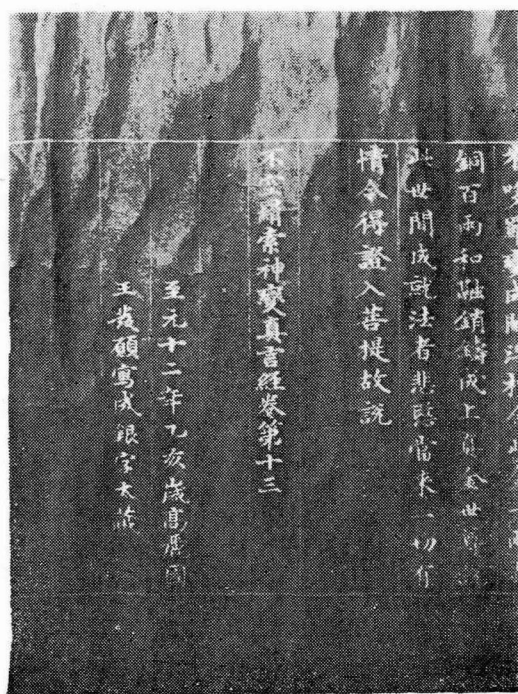 金一兩
銅百兩和融銷鑄成上真金世尊
此世間成就法者悲愍當來一切有
情令得證入菩提故説
不空羂索神變真言經卷第十三
至元十二年乙亥歳高麗國
王發願寫成銀字大藏